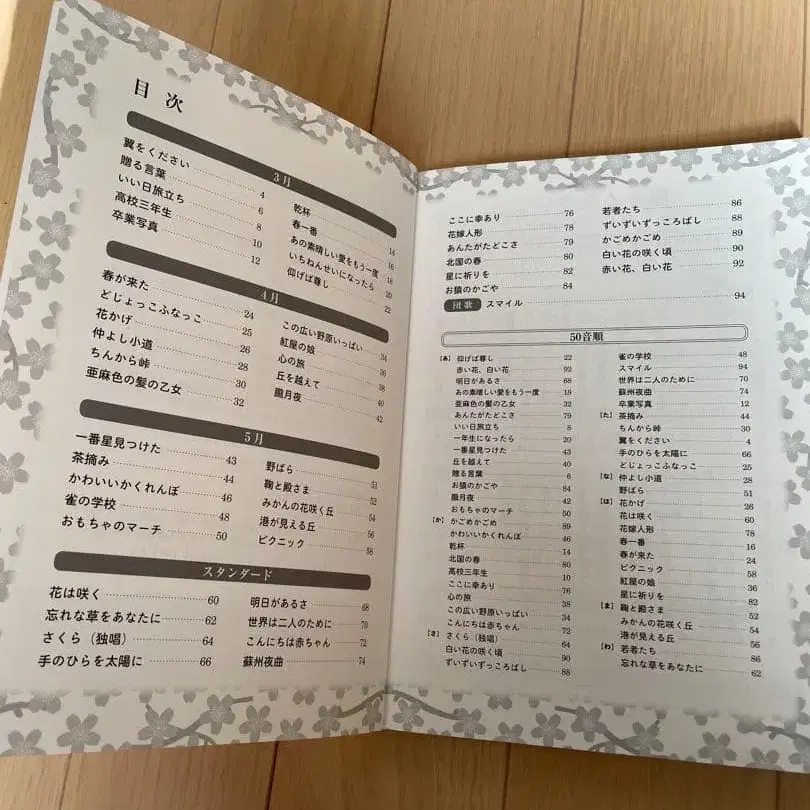 目次
3月
翼をください 4
贈る言葉 6
いい日旅立ち 8
高校三年生 10
卒業写真 12
乾杯 14
春一番 16
あの素晴しい愛をもう一度 18
いちねんせいになったら 20
仰げば尊し 22
4月
春が来た 24
どじょっこふなっこ 25
花かげ 26
仲よし小道 28
ちんから峠 30
亜麻色の髪の乙女 32
この広い野原いっぱい 34
紅屋の娘 36
心の旅 38
丘を越えて 40
朧月夜 42
5月
一番星見つけた 43
茶摘み 44
かわいいかくれんぼ 46
雀の学校 48
おもちゃのマーチ 50
野ばら 51
鞠と殿さま 52
みかんの花咲く丘 54
港が見える丘 56
ピクニック 58
スタンダード
花は咲く 60
忘れな草をあなたに 62
さくら（独唱） 64
手のひらを太陽に 66
明日があるさ 68
世界は二人のために 70
こんにちは赤ちゃん 72
蘇州夜曲 74
ここに幸あり 76
花嫁人形 78
あんたがたどこさ 79
北国の春 80
星に祈りを 82
お猿のかごや 84
若者たち 86
ずいずいずっころばし 88
かごめかごめ 89
白い花の咲く頃 90
赤い花、白い花 92
団歌 スマイル 94
50音順
【あ】 仰げば尊し 22
赤い花、白い花 92
明日があるさ 68
あの素晴しい愛をもう一度 18
亜麻色の髪の乙女 32
あんたがたどこさ 79
いい日旅立ち 8
一年生になったら 20
一番星見つけた 43
丘を越えて 40
贈る言葉 6
お猿のかごや 84
朧月夜 42
おもちゃのマーチ 50
【か】 かごめかごめ 89
かわいいかくれんぼ 46
乾杯 14
北国の春 80
高校三年生 10
ここに幸あり 76
心の旅 38
この広い野原いっぱい 34
こんにちは赤ちゃん 72
【さ】 さくら（独唱） 64
白い花の咲く頃 90
ずいずいずっころばし 88
雀の学校 48
スマイル 94
世界は二人のために 70
蘇州夜曲 74
卒業写真 12
【た】 茶摘み 44
ちんから峠 30
翼をください 4
手のひらを太陽に 66
どじょっこふなっこ 25
【な】 仲よし小道 28
野ばら 51
【は】 花かげ 26
花は咲く 60
花嫁人形 78
春一番 16
春が来た 24
ピクニック 58
紅屋の娘 36
星に祈りを 82
【ま】 鞠と殿さま 52
みかんの花咲く丘 54
港が見える丘 56
【わ】 若者たち 86
忘れな草をあなたに 62